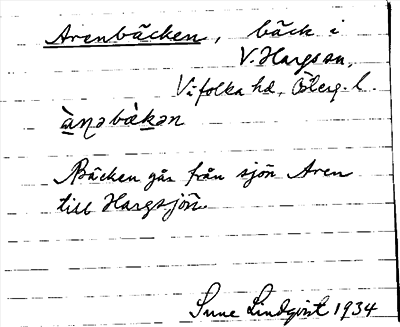 Arenbäcken, bäck i
V. Hargs sn,
Vifolka hd, Österg. l.
àṇəbàkən
Bäcken går från sjön Aren
till Hargsjön.
Sune Lindqvist 1934